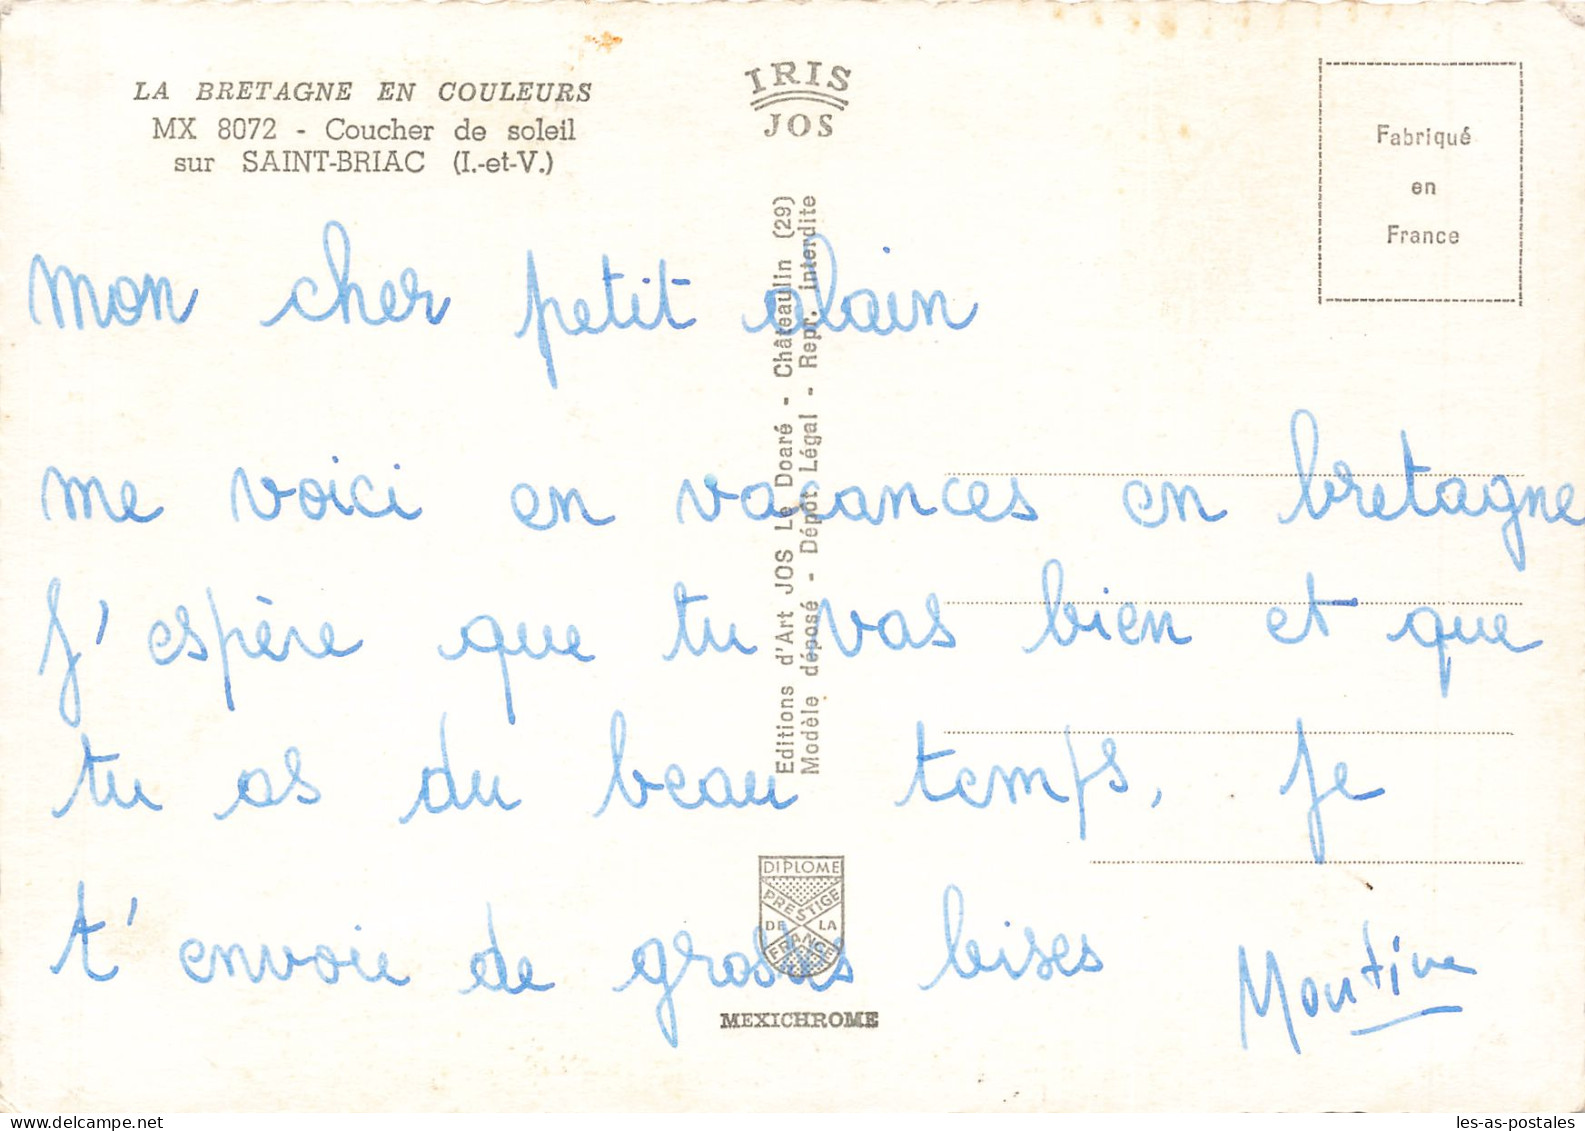 LA BRETAGNE EN COULEURS
MX 8072 - Coucher de soleil
sur SAINT-BRIAC (I.-et-V.)
IRIS
JOS
Fabriqué
en
France
Editions d'Art JOS Le Doaré - Châteaulin (29)
Modèle déposé - Dépôt Légal - Repr. interdite
mon cher petit alain
me voici en vacances en bretagne
j'espère que tu vas bien et que
tu as du beau temps, je
t'envoie de grosses bises
Martine
DIPLOME
PRESTIGE
DE LA
FRANCE
MEXICHROME
www.delcampe.net
les-as-postales